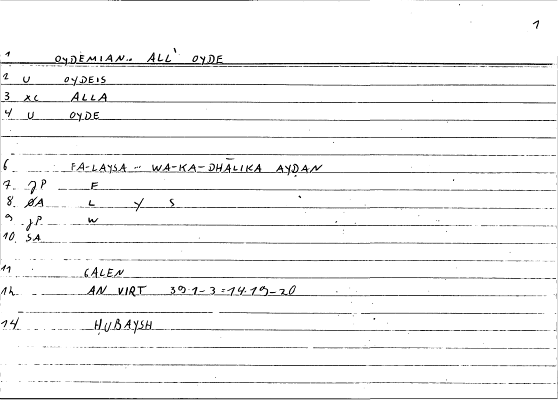 1
1 OYDEMIAN.. ALL' OYDE
2 U OYDEIS
3 XC ALLA
4 U OYDE
6 FA-LAYSA .. WA-KA-DHĀLIKA AYDAN
7. JP F
8. ØA L Y S
9 JP W
10. SA
11 GALEN
12 AN VIRT 39.1-3=14.19-20
14 HUBAYSH